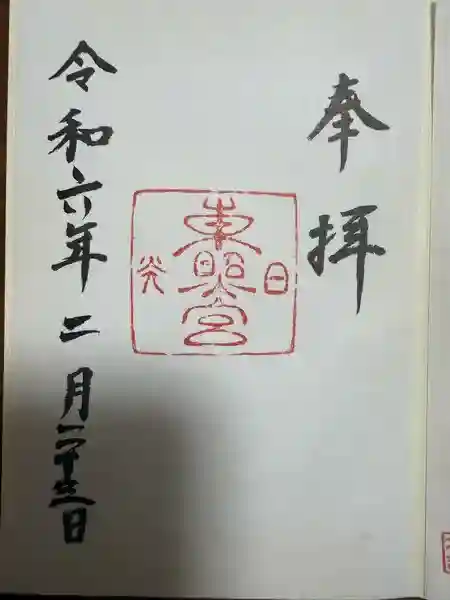 奉拝
日
東照宮
光
令和六年二月二十三日